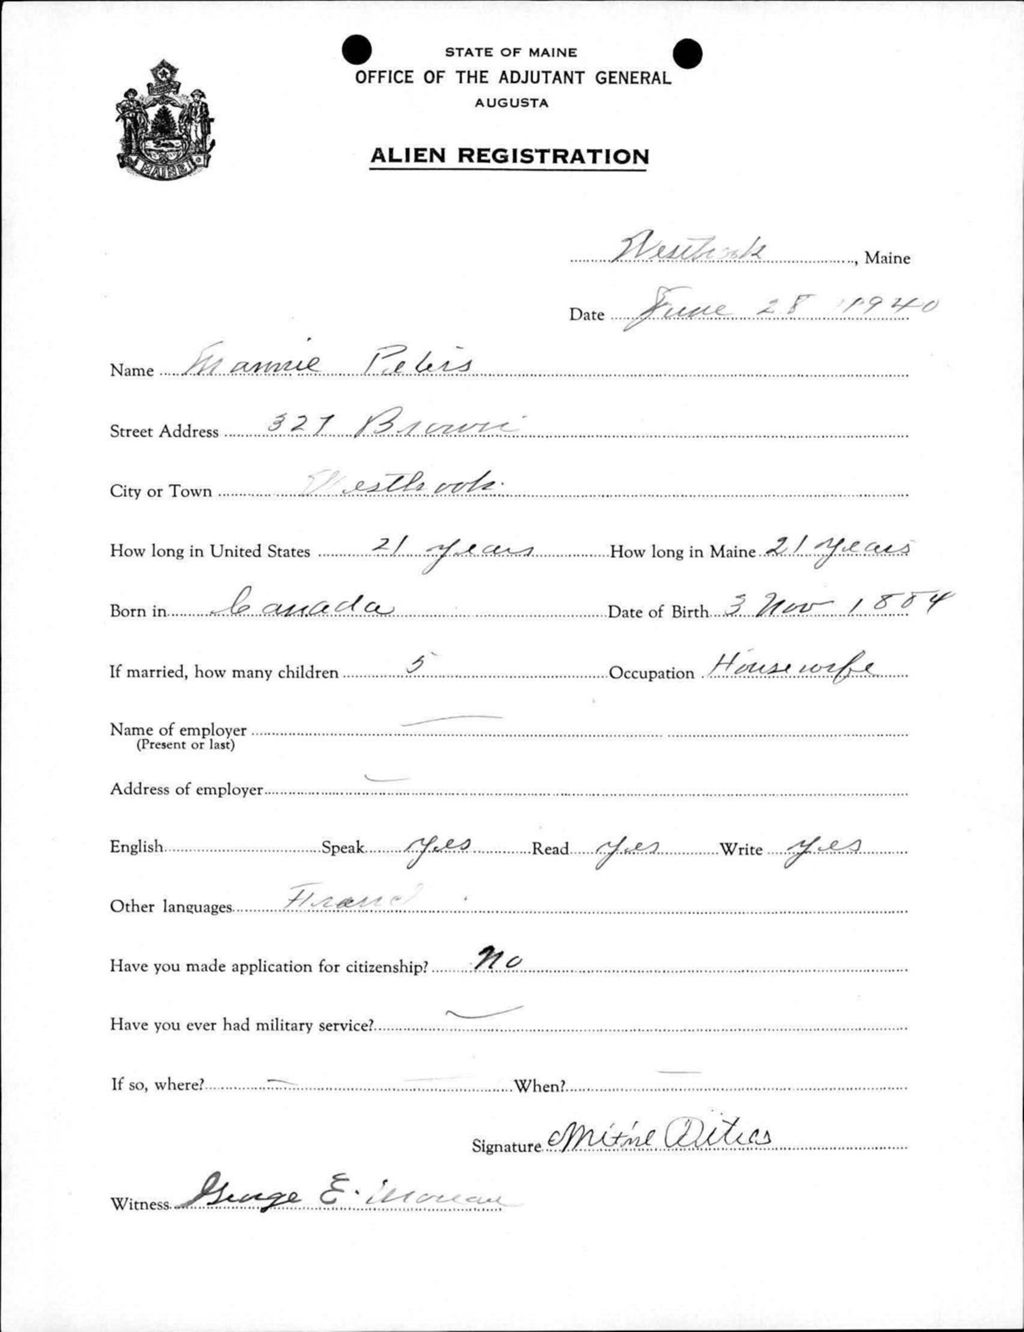 STATE OF MAINE
OFFICE OF THE ADJUTANT GENERAL
AUGUSTA
ALIEN REGISTRATION
MAINE
Westbrook, Maine
Date June 28 1940
Name Mannie Peters
Street Address 327 Brown
City or Town Westbrook
How long in United States 21 years How long in Maine 21 years
Born in Canada Date of Birth 3 Nov 1884
If married, how many children 5 Occupation Housewife
Name of employer —
(Present or last)
Address of employer —
English Speak yes Read yes Write yes
Other languages
Have you made application for citizenship? No
Have you ever had military service? —
If so, where? — When? —
Signature
Witness George E.